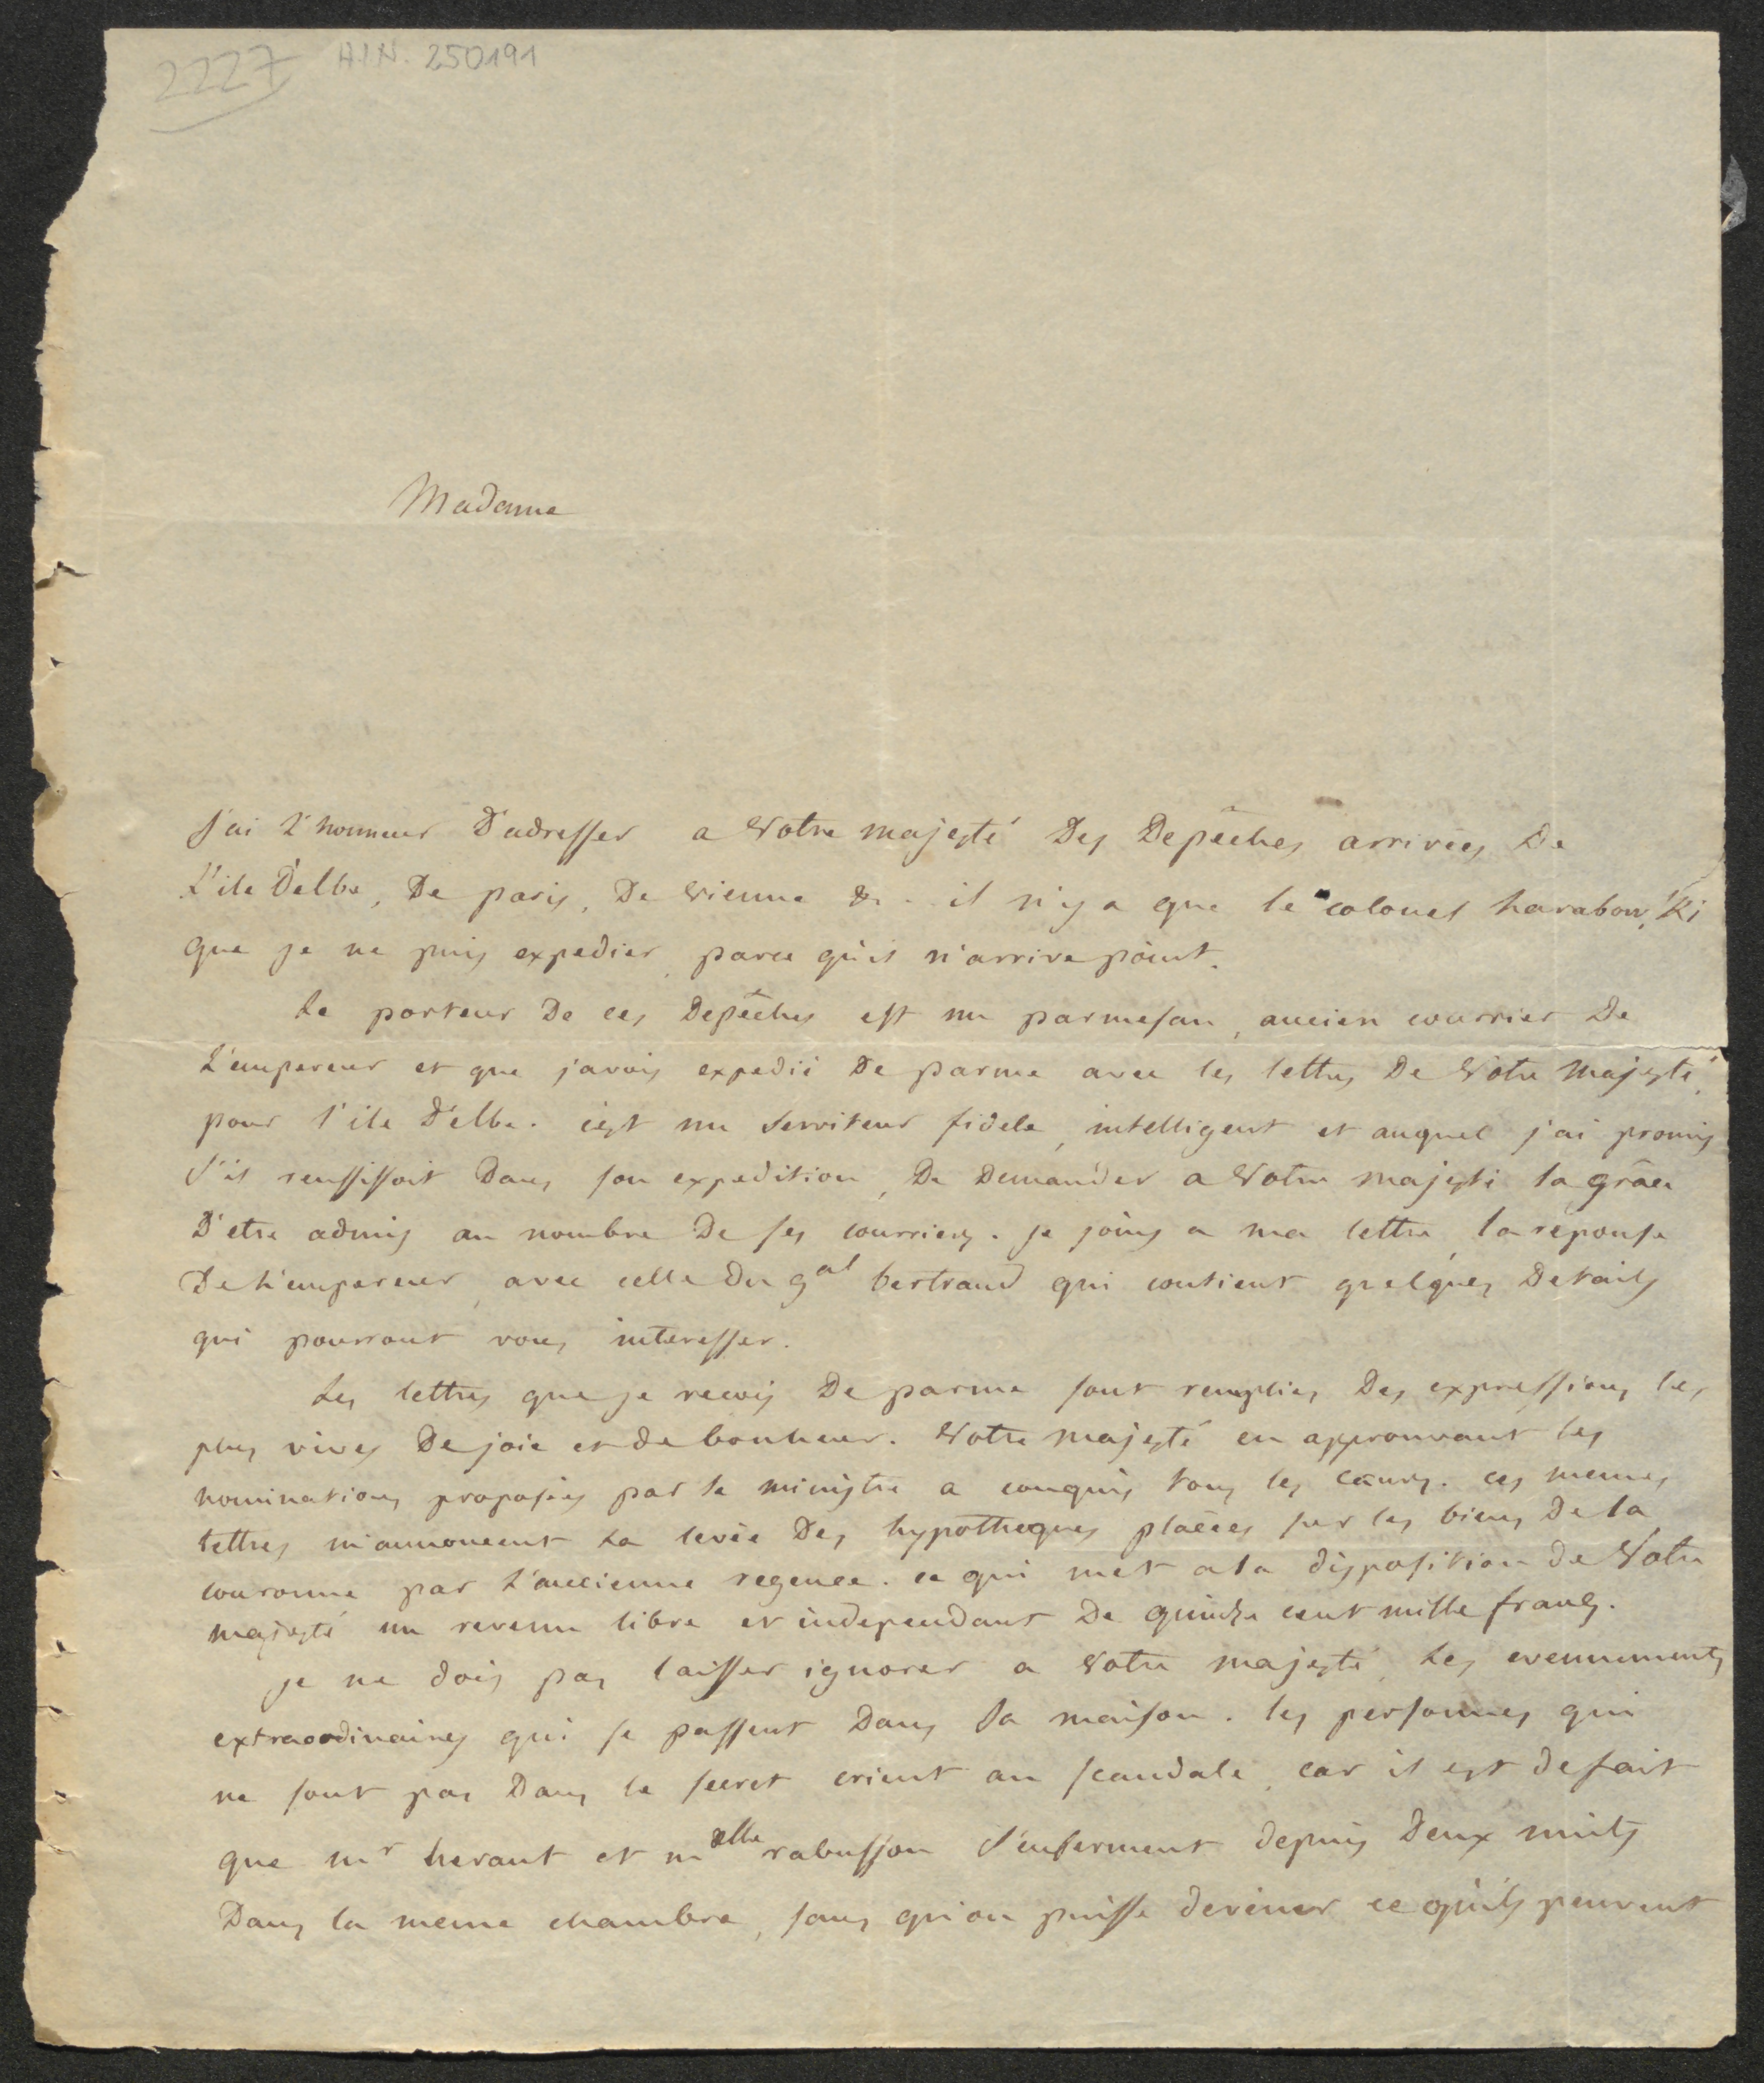 2227 H.I.N. 250191
Madame
J'ai l'honneur D'adresser a Votre majesté Des Depêches arrivées De
L'ile D'elbe, De paris, De Vienne &c. il n'y a que le colonel
que je ne puis expedier, parce qu'il n'arrive point.
Le porteur De ces Depêches est un parmesan, ancien courrier De
L'empereur et que j'avois expedié De parme avec les lettres De Votre Majesté,
pour l'ile D'elbe. c'est un Serviteur fidele, intelligent et auquel j'ai promis
S'il reussissoit Dans son expedition, De Demander a Votre majesté la grâce
D'etre admis au nombre De ses courriers. Je joins a ma lettre, la reponse
De L'empereur, avec celle Du gal bertrand qui contient quelques Details
qui pourront vous interesser.
Les lettres que je reçois De parme sont remplies Des expressions les
plus vives De joie et de bonheur. Votre majesté en approuvant les
nominations proposées par le ministre a conquis tous les cœurs. ces memes
lettres m'annoncent La levée Des hypotheques placées sur les biens De la
couronne par L'ancienne regence. ce qui met a la disposition de Votre
majesté un revenu libre et independant De quinze cent mille francs.
je ne dois pas laisser ignorer a Votre majesté, Les evennements
extraordinaires qui se passent Dans Sa maison. les personnes qui
ne sont pas Dans le secret crient au scandale, car il est de fait
que mr heraut et mdelle rabusson S'enferment depuis Deux nuits
Dans la meme chambre, sans qu'on puisse deviner ce qu'ils peuvent